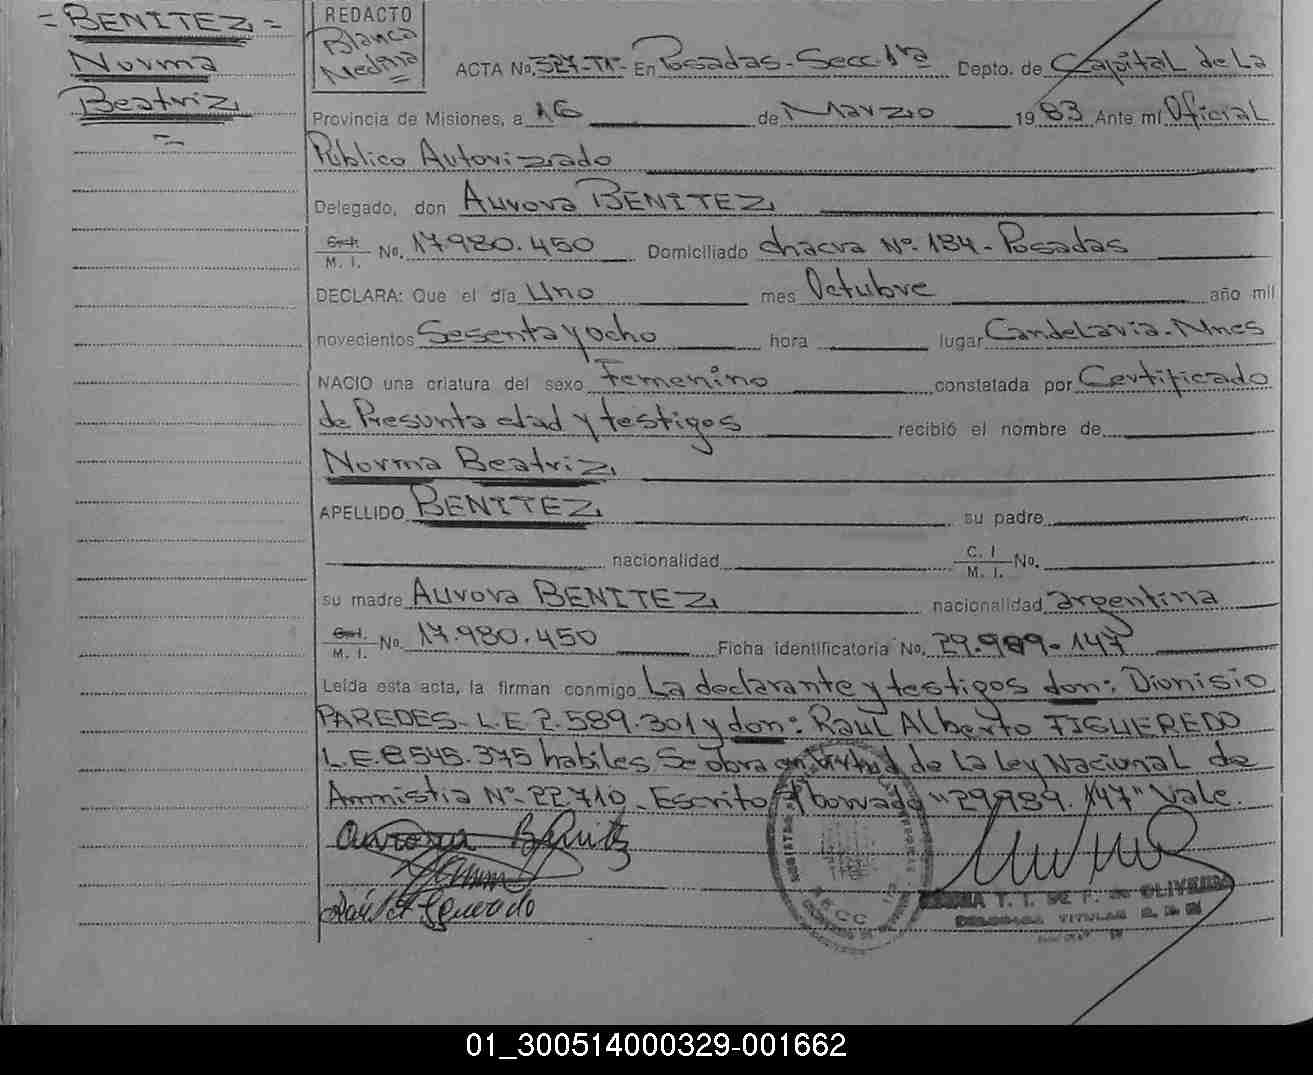 = BENITEZ =
Norma
Beatriz
=
REDACTO
Blanca
Medina
ACTA No. 327-TI- En Posadas-Secc. 1ra Depto. de Capital de La
Provincia de Misiones, a 16 de Marzo 1983 Ante mí Oficial
Público Autorizado
Delegado, don Aurora BENITEZ
M. I. No. 17.980.450 Domiciliado chacra Nº 184- Posadas
DECLARA: Que el día Uno mes Octubre año mil
novecientos Sesenta y ocho hora lugar Candelaria-Mnes
NACIO una criatura del sexo Femenino constatada por Certificado
de Presunta edad y testigos recibió el nombre de
Norma Beatriz
APELLIDO BENITEZ su padre
nacionalidad C. I. M. I. No.
su madre Aurora BENITEZ nacionalidad argentina
M. I. No. 17.980.450 Ficha identificatoria No. 29.989-147
Leída esta acta, la firman conmigo La declarante y testigos don: Dionisio
PAREDES- L.E 2.589.301 y don: Raul Alberto FIGUEREDO
L.E. 8545.375 habiles Se obra en virtud de La Ley Nacional de
Amnistia Nº 22710. Escrito s/borrado "29989.147" Vale.
Aurora Benitez
Raúl A Figueredo
T. T. DE F. de OLIVEIRA
DELEGADA TITULAR
01_300514000329-001662